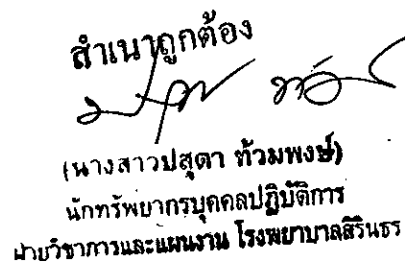 สำเนาถูกต้อง
(นางสาวปสุตา ท้วมพงษ์)
นักทรัพยากรบุคคลปฏิบัติการ
ฝ่ายวิชาการและแผนงาน โรงพยาบาลสิรินธร